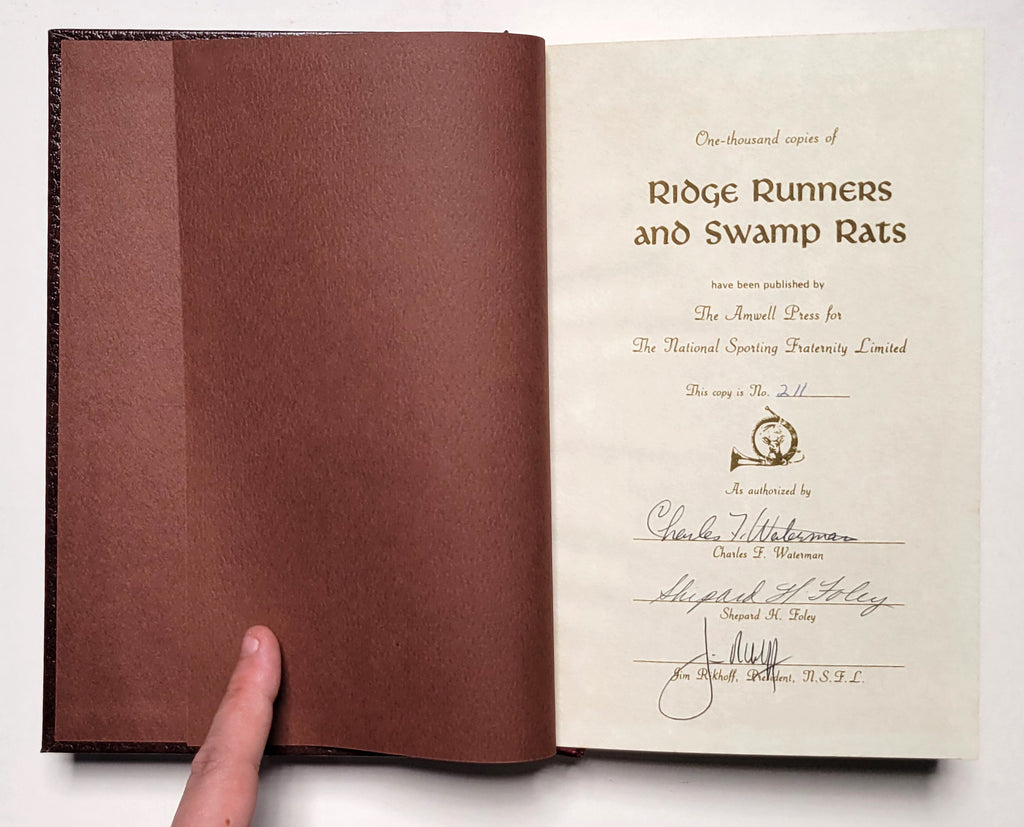 One-thousand copies of
Ridge Runners
and Swamp Rats
have been published by
The Amwell Press for
The National Sporting Fraternity Limited
This copy is No. 211
As authorized by
Charles F. Waterman
Charles F. Waterman
Shepard H. Foley
Shepard H. Foley
Jim Rikhoff
Jim Rikhoff, President, N.S.F.L.